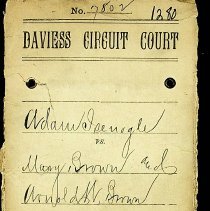 No. 7802 1280
DAVIESS CIRCUIT COURT
Adam Isenogle
vs.
Mary Brown and
Arnold W. Brown